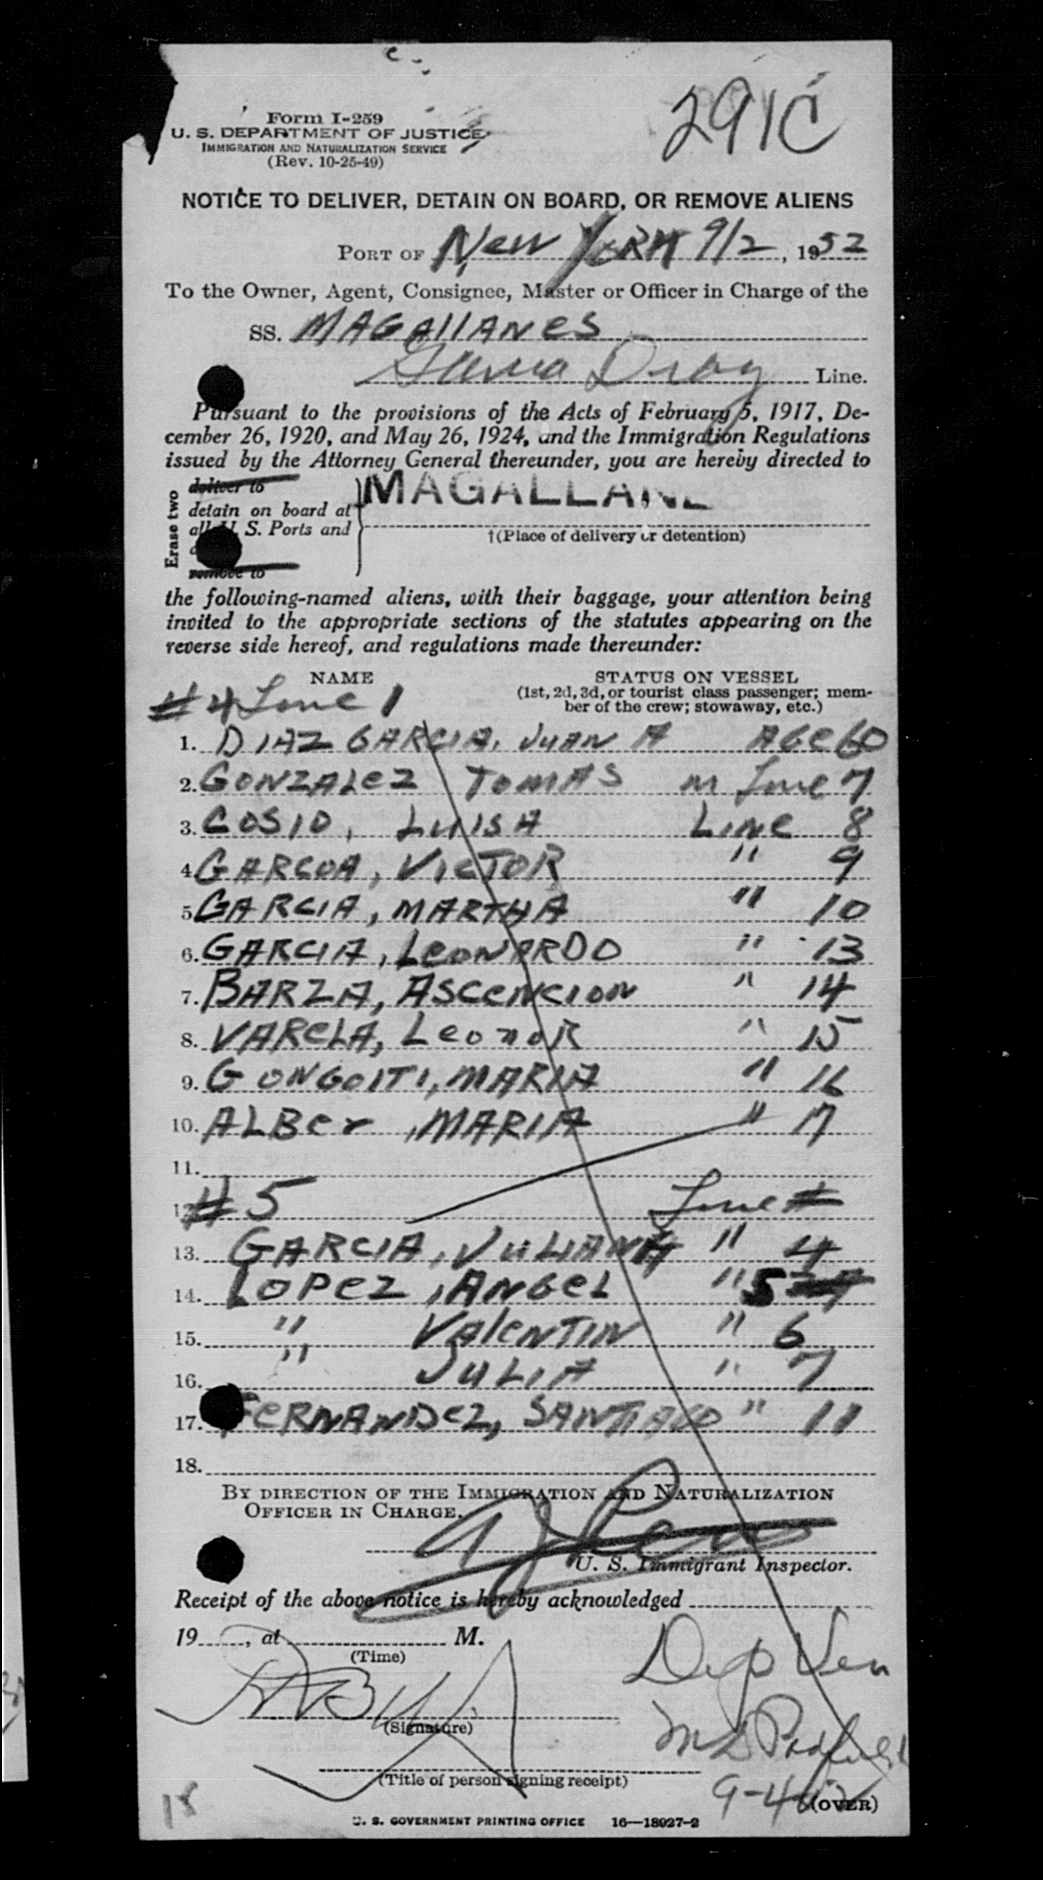 291C
Form I-259
U. S. DEPARTMENT OF JUSTICE
IMMIGRATION AND NATURALIZATION SERVICE
(Rev. 10-25-49)
NOTICE TO DELIVER, DETAIN ON BOARD, OR REMOVE ALIENS
PORT OF New YORK 9/2, 1952
To the Owner, Agent, Consignee, Master or Officer in Charge of the
SS. MAGAllANES
Garcia Diaz Line.
Pursuant to the provisions of the Acts of February 5, 1917, De-
cember 26, 1920, and May 26, 1924, and the Immigration Regulations
issued by the Attorney General thereunder, you are hereby directed to
Erase two
deliver to
detain on board at
all U. S. Ports and
remove to
MAGALLANE
†(Place of delivery or detention)
the following-named aliens, with their baggage, your attention being
invited to the appropriate sections of the statutes appearing on the
reverse side hereof, and regulations made thereunder:
NAME STATUS ON VESSEL
(1st, 2d, 3d, or tourist class passenger; mem-
ber of the crew; stowaway, etc.)
#4 Line 1
1. DIAZ GARCIA, JUAN A AGe 60
2. GONZALeZ TOMAS m Line 7
3. COSIO, LUISA LINe 8
4. GARCOA, VICTOR " 9
5. GARCIA, MARTHA " 10
6. GARCIA, LeONARDO " 13
7. BARZA, ASCeNCION " 14
8. VARelA, LeonoR " 15
9. GONGOITI, MARIA " 16
10. ALBer, MARIA " 17
11.
12. #5 Line #
13. GARCIA, JULIANA " 4
14. LOPeZ, ANGeL " 5
15. " VAleNTIN " 6
16. " JULIA " 7
17. FeRNANDeZ, SANTIAGO " 11
18.
BY DIRECTION OF THE IMMIGRATION AND NATURALIZATION
OFFICER IN CHARGE.
U. S. Immigrant Inspector.
Receipt of the above notice is hereby acknowledged
19......, at M.
(Time)
(Signature)
(Title of person signing receipt)
9-4-52
(OVER)
18
U. S. GOVERNMENT PRINTING OFFICE 16—18027-2